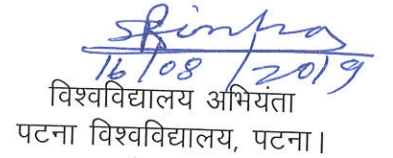 16/08/2019
विश्वविद्यालय अभियंता
पटना विश्वविद्यालय, पटना।